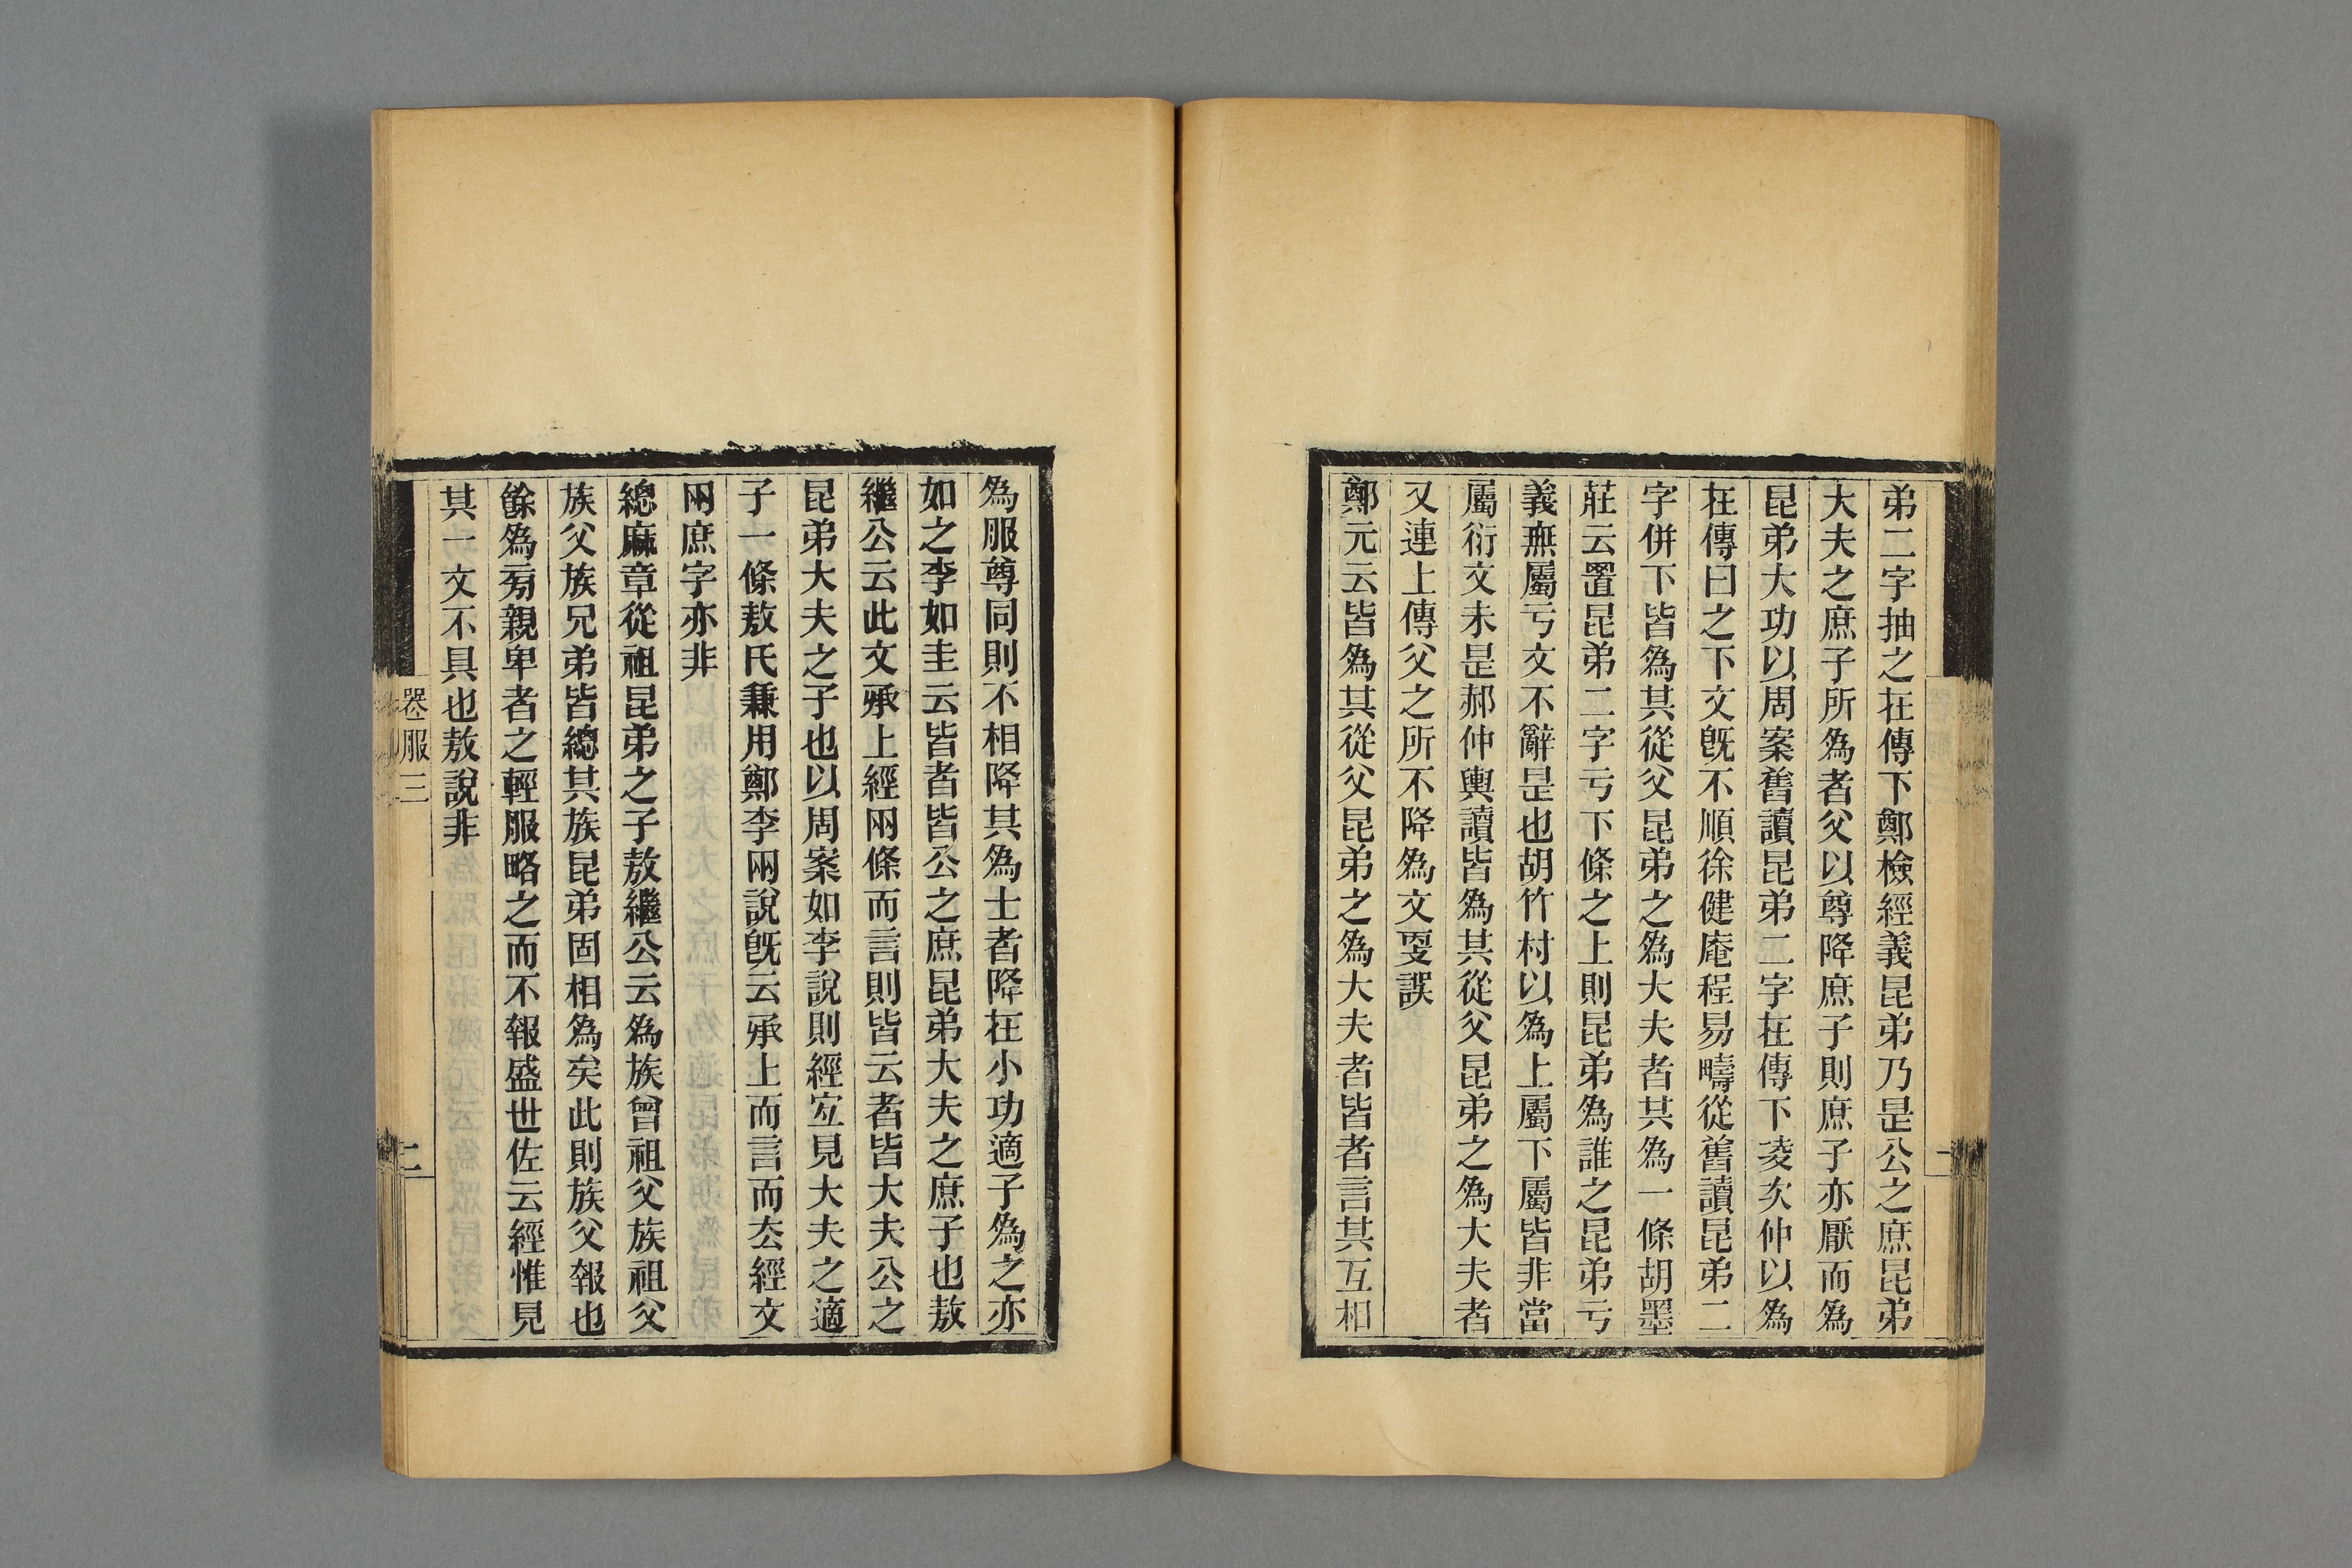 弟二字抽之在傳下鄭檢經義昆弟乃是公之庶昆弟
大夫之庶子所爲者父以尊降庶子則庶子亦厭而爲
昆弟大功以周案舊讀昆弟二字在傳下凌次仲以爲
在傳曰之下文旣不順徐健庵程易疇從舊讀昆弟二
字併下皆爲其從父昆弟之爲大夫者其爲一條胡墨
莊云置昆弟二字亏下條之上則昆弟爲誰之昆弟亏
義無屬亏文不辭是也胡竹村以爲上屬下屬皆非當
屬衍文未是郝仲輿讀皆爲其從父昆弟之爲大夫者
又連上傳父之所不降爲文叟誤
鄭元云皆爲其從父昆弟之爲大夫者皆者言其互相
爲服尊同則不相降其爲士者降在小功適子爲之亦
如之李如圭云皆者皆公之庶昆弟大夫之庶子也敖
繼公云此文承上經兩條而言則皆云者皆大夫公之
昆弟大夫之子也以周案如李說則經宐見大夫之適
子一條敖氏兼用鄭李兩說旣云承上而言而厺經文
兩庶字亦非
緦麻章從祖昆弟之子敖繼公云爲族曾祖父族祖父
族父族兄弟皆緦其族昆弟固相爲矣此則族父報也
餘爲旁親卑者之輕服略之而不報盛世佐云經惟見
其一文不具也敖說非
喪服三
二